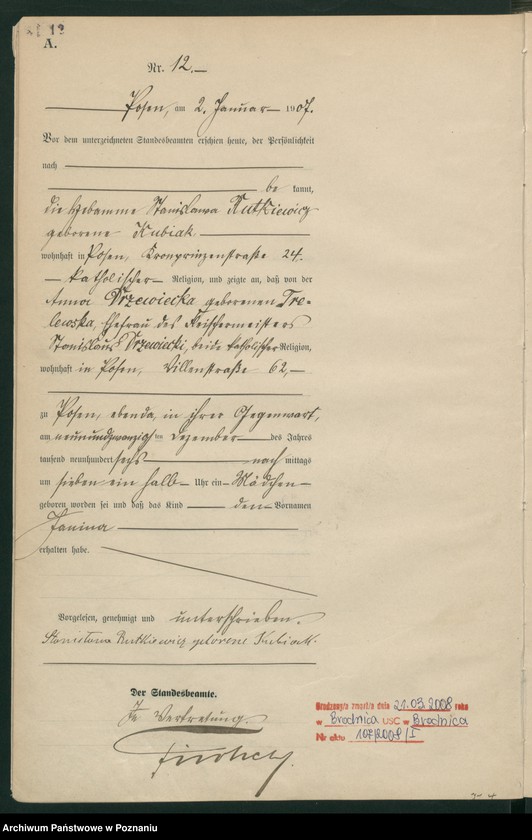 12
A.
Nr. 12.
Posen, am 2. Januar 1907.
Vor dem unterzeichneten Standesbeamten erschien heute, der Persönlichkeit
nach
be kannt,
die Hebamme Stanislawa Rutkiewicz
geborene Kubiak
wohnhaft in Posen, Kronprinzenstraße 24.
katholischer Religion, und zeigte an, daß von der
Anna Drzewiecka geborenen Tre-
lewska, Ehefrau des Fleischermeisters
Stanislaus Drzewiecki, beide katholischer Religion,
wohnhaft in Posen, Villenstraße 62,
zu Posen, ebenda, in ihrer Gegenwart,
am neunundzwanzigsten Dezember des Jahres
tausend neunhundert sechs nach mittags
um sieben ein halb Uhr ein Mädchen
geboren worden sei und daß das Kind den Vornamen
Janina
erhalten habe.
Vorgelesen, genehmigt und unterschrieben.
Stanislawa Rutkiewicz geborene Kubiak.
Der Standesbeamte.
In Vertretung.
zmarł/a dnia 21.03.2008 roku
w Brodnica USC w Brodnica
Nr aktu 107/2008/I
Archiwum Państwowe w Poznaniu